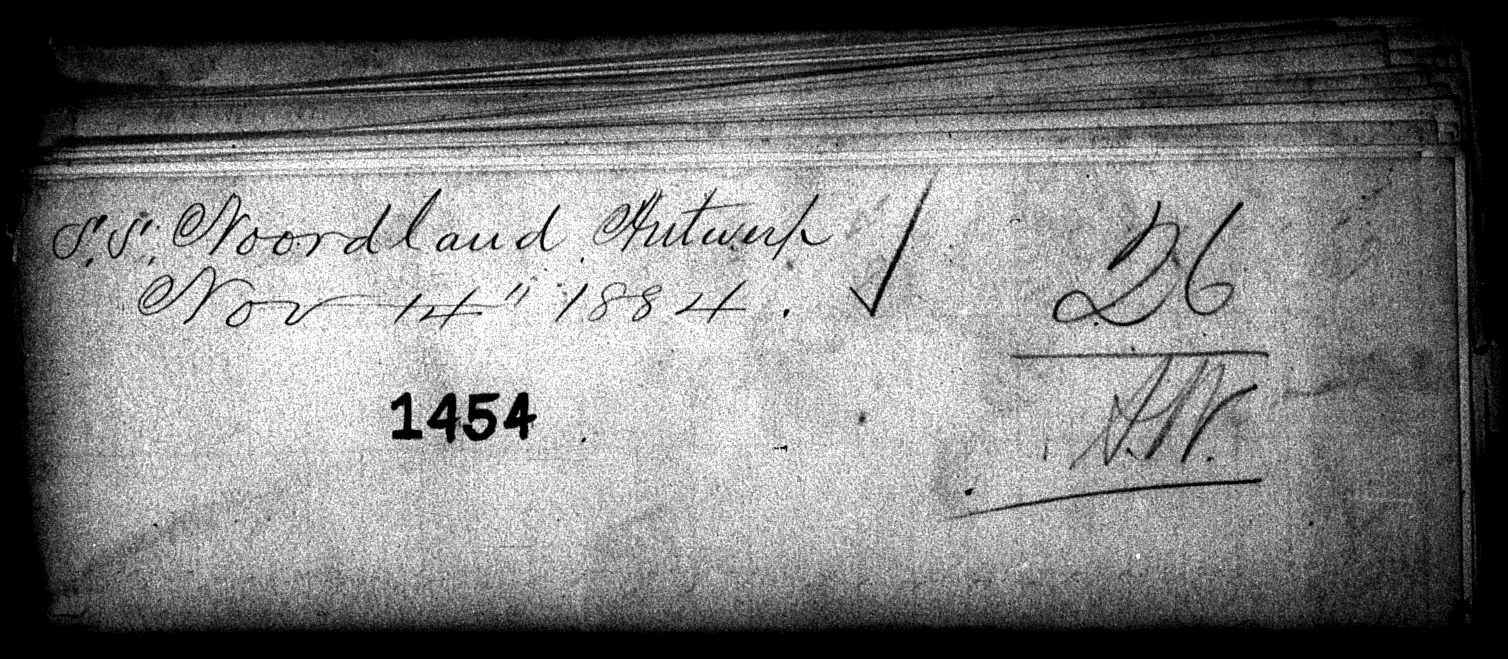 S.S. Noordland Antwerp
Nov 14" 1884.
1454
26